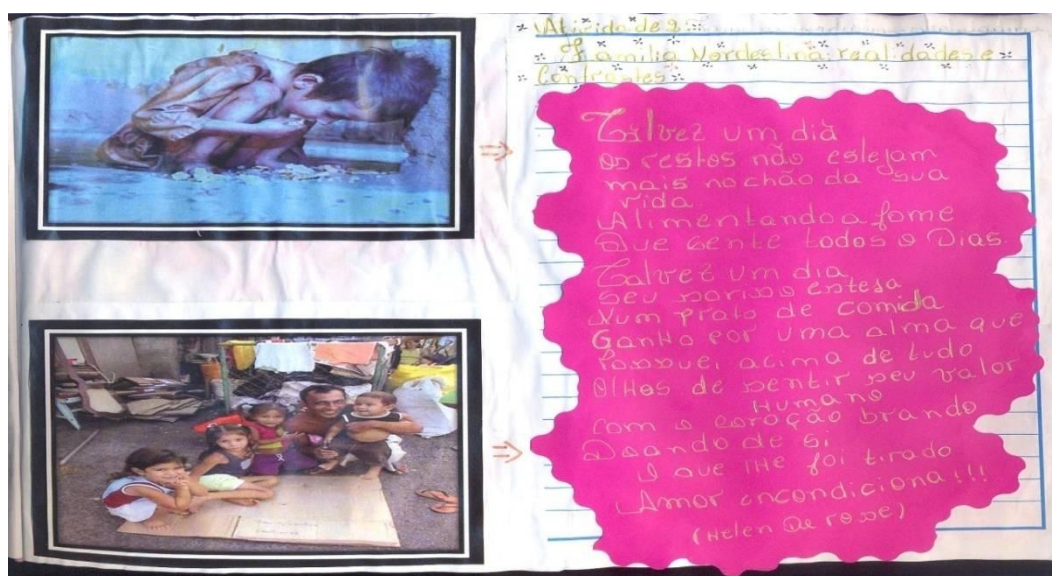 Atividade 2:
Familia Nordestina realidades e
Contrastes:
Talvez um dia
os restos não estejam
mais no chão da sua
vida
Alimentando a fome
Que sente todos o Dias.
Talvez um dia
seu sorriso esteja
Num prato de comida
Ganho por uma alma que
Possue, acima de tudo
Olhos de sentir seu valor
Humano
com o coração brando
Doando de si
O que lhe foi tirado
Amor incondicional!!!
(Helen De rose)